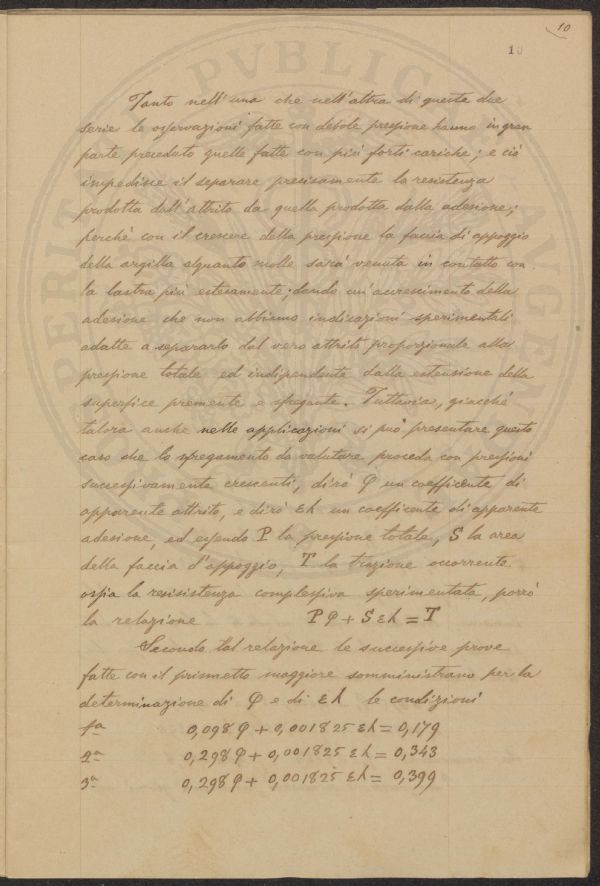 10
10
Tanto nell'una che nell'altra di queste due
serie le osservazioni fatte con debole pressione hanno in gran
parte preceduto quelle fatte con più forti cariche; e ciò
impedisce il separare precisamente la resistenza
prodotta dall'attrito da quella prodotta dalla adesione;
perchè con il crescere della pressione la faccia di appoggio
della argilla alquanto molle sarà venuta in contatto con
la lastra più estesamente; dando un'accrescimento della
adesione che non abbiamo indicazioni sperimentali
adatte a separarlo dal vero attrito proporzionale alla
pressione totale ed indipendente dalla estensione della
superfice premente e sfregante. Tuttavia, giacchè
talora anche nelle applicazioni si può presentare questo
caso che lo sfregamento da valutare proceda con pressioni
successivamente crescenti, dirò φ un coefficente di
apparente attrito, e dirò εh un coefficente di apparente
adesione, ed essendo P la pressione totale, S la area
della faccia d'appoggio, T la trazione occorrente
ossia la resisistenza complessiva sperimentata, porrò
la relazione Pφ + Sεh = T
Secondo tal relazione le successive prove
fatte con il prismetto maggiore somministrano per la
determinazione di φ e di εh le condizioni
1ª 0,098 φ + 0,001825 εh = 0,179
2ª 0,298 φ + 0,001825 εh = 0,343
3ª 0,298 φ + 0,001825 εh = 0,399
PERITIA PVBLICA AVGEN